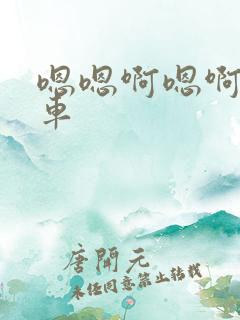 嗯嗯啊嗯啊
車
唐開元
未经同意禁止转载